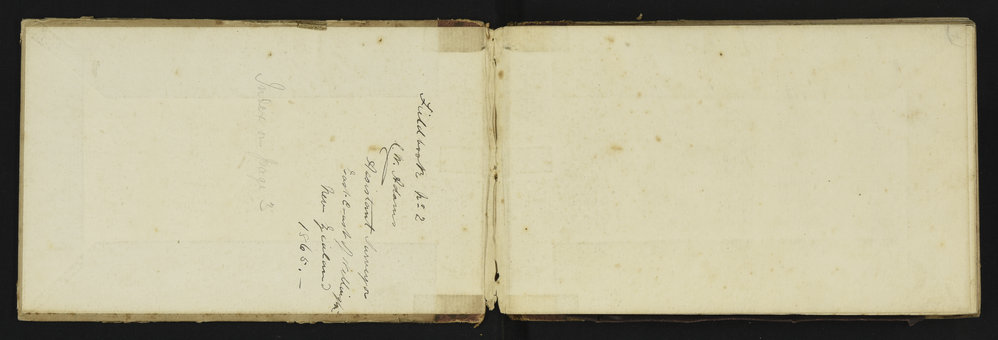 Fieldbook No 2
C W. Adams
Assistant Surveyor
East Coast of Wellington
New Zealand
1865.—
Index on page 3